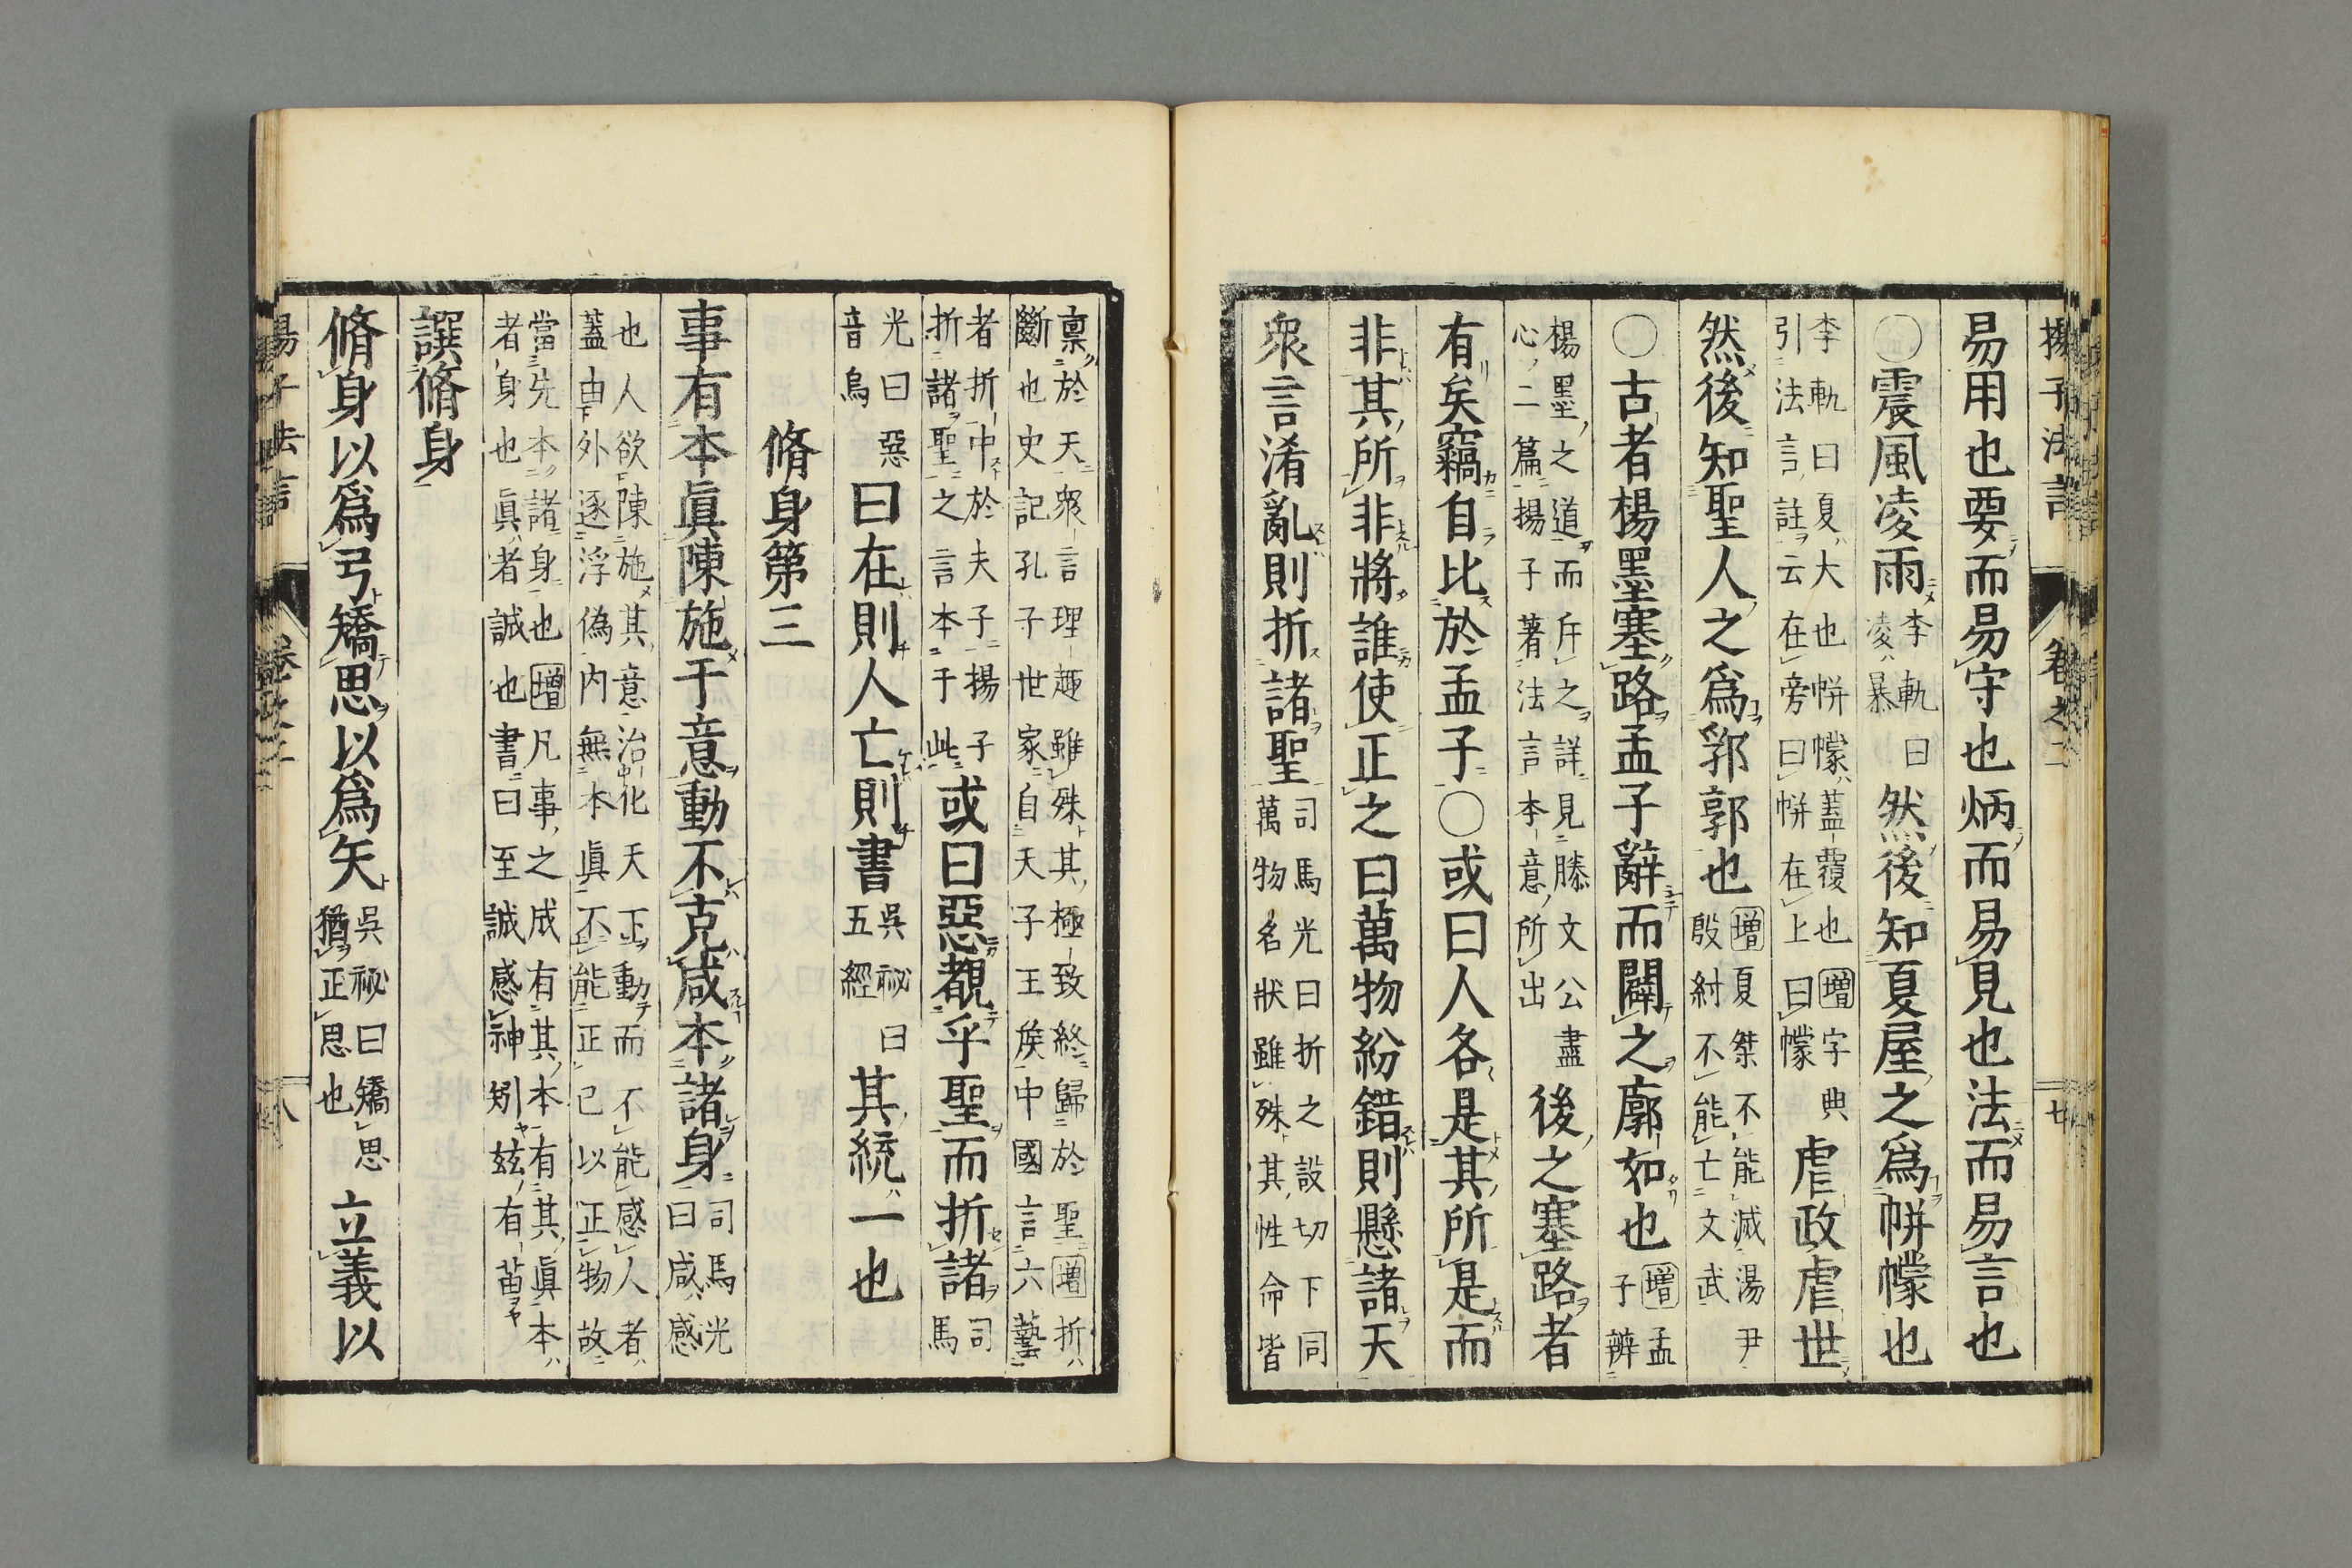 揚子法言 卷之二 廿
易用也要而易守也炳而易見也法而易言也
〇震風凌雨李軌曰凌暴然後知夏屋之爲帡幪也
李軌曰夏大也帡幪蓋覆也增字典
引法言註云在旁曰帡在上曰幪
虐政虐世
然後知聖人之爲郛郭也
增夏桀不能滅湯尹
殷紂不能亡文武
〇古者楊墨塞路孟子辭而闢之廓如也
增孟
子辨
楊墨之道而斥之詳見滕文公盡
心二篇揚子著法言本意所出
後之塞路者
有矣竊自比於孟子〇或曰人各是其所是而
非其所非將誰使正之曰萬物紛錯則懸諸天
衆言淆亂則折諸聖
司馬光曰折之設切下同
萬物名狀雖殊其性命皆
稟於天衆言理趣雖殊其極致終歸於聖增折
斷也史記孔子世家自天子王侯中國言六藝
者折中於夫子揚子
折諸聖之言本于此
或曰惡覩乎聖而折諸
司
馬
光曰惡
音烏
曰在則人亡則書
吳祕曰
五經
其統一也
脩身第三
事有本眞陳施于意動不克咸本諸身
司馬光
曰咸感
也人欲陳施其意治化天下動而不能感人者
蓋由外逐浮偽内無本眞不能正己以正物故
當先本諸身也增凡事之成有其本有其眞本
者身也眞者誠也書曰至誠感神矧玆有苗
譔脩身
脩身以爲弓矯思以爲矢
吳祕曰矯思
猶正思也
立義以